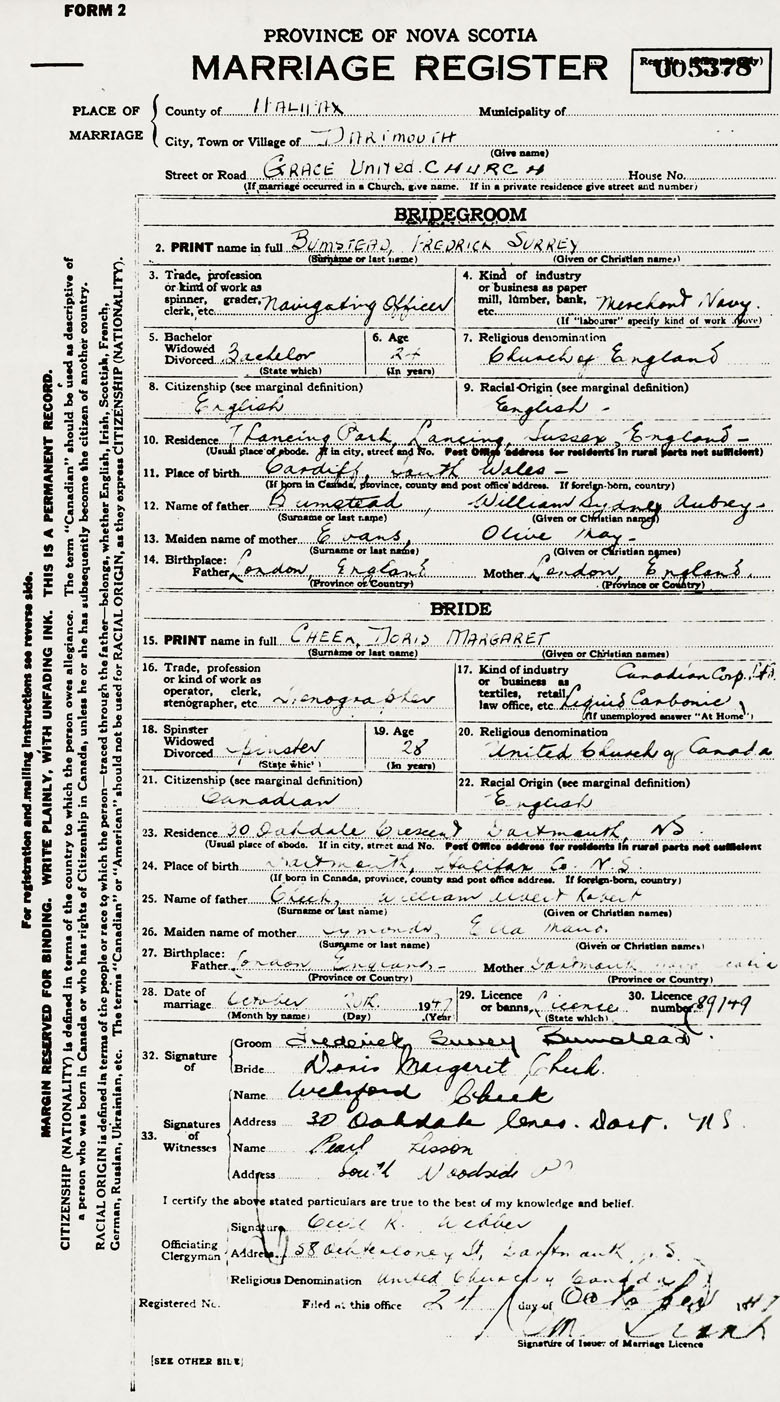 FORM 2
PROVINCE OF NOVA SCOTIA
MARRIAGE REGISTER
005378
PLACE OF MARRIAGE
County of HALIFAX Municipality of
City, Town or Village of DARTMOUTH
(Give name)
Street or Road GRACE UNITED CHURCH House No.
(If marriage occurred in a Church, give name. If in a private residence give street and number)
BRIDEGROOM
2. PRINT name in full BUMSTEAD, FREDRICK SURREY
(Surname or last name) (Given or Christian names)
3. Trade, profession or kind of work as spinner, grader, clerk, etc. Navigating Officer
4. Kind of industry or business as paper mill, lumber, bank, etc. Merchant Navy.
(If "labourer" specify kind of work above)
5. Bachelor Widowed Divorced Bachelor
(State which)
6. Age 24
(In years)
7. Religious denomination
Church of England
8. Citizenship (see marginal definition)
English
9. Racial-Origin (see marginal definition)
English -
10. Residence 7 Lancing Park, Lancing, Sussex, England -
(Usual place of abode. If in city, street and No. Post Office address for residents in rural parts not sufficient)
11. Place of birth Cardiff, South Wales -
(If born in Canada, province, county and post office address. If foreign-born, country)
12. Name of father Bumstead, William Sydney Aubrey -
(Surname or last name) (Given or Christian names)
13. Maiden name of mother Evans, Olive May -
(Surname or last name) (Given or Christian names)
14. Birthplace: Father London, England Mother London, England.
(Province or Country) (Province or Country)
BRIDE
15. PRINT name in full CHEEK, DORIS MARGARET
(Surname or last name) (Given or Christian names)
16. Trade, profession or kind of work as operator, clerk, stenographer, etc Stenographer
17. Kind of industry or business as textiles, retail, law office, etc. Liquid Carbonic Canadian Corp. Ltd.
(If unemployed answer "At Home")
18. Spinster Widowed Divorced Spinster
(State which)
19. Age 28
(In years)
20. Religious denomination
United Church of Canada
21. Citizenship (see marginal definition)
Canadian
22. Racial Origin (see marginal definition)
English
23. Residence 30 Oakdale Crescent, Dartmouth, NS.
(Usual place of abode. If in city, street and No. Post Office address for residents in rural parts not sufficient
24. Place of birth Dartmouth, Halifax Co. N.S.
(If born in Canada, province, county and post office address. If foreign-born, country)
25. Name of father Cheek, William Albert Robert
(Surname or last name) (Given or Christian names)
26. Maiden name of mother Symonds, Ella
(Surname or last name) (Given or Christian names)
27. Birthplace: Father London England - Mother Dartmouth
(Province or Country) (Province or Country)
28. Date of marriage October 1947
(Month by name) (Day) (Year)
29. Licence or banns, Licence
(State which)
30. Licence number 89149
32. Signature of
Groom Frederick Surrey Bumstead.
Bride Doris Margaret Cheek.
33. Signatures of Witnesses
Name Welsford Cheek
Address 30 Oakdale Cres. Dart. N.S.
Name Pearl Lisson
Address South Woodside
I certify the above stated particulars are true to the best of my knowledge and belief.
Officiating Clergyman
Signature Cecil R. Webber
Address 58 Ochterloney St, Dartmouth, N.S.
Religious Denomination United Church of Canada
Registered No. Filed at this office 24 day of October 1947
Signature of Issuer of Marriage Licence
[SEE OTHER SIDE]
For registration and mailing instructions see reverse side.
MARGIN RESERVED FOR BINDING. WRITE PLAINLY, WITH UNFADING INK. THIS IS A PERMANENT RECORD.
CITIZENSHIP (NATIONALITY) is defined in terms of the country to which the person owes allegiance. The term "Canadian" should be used as descriptive of
a person who was born in Canada or who has rights of Citizenship in Canada, unless he or she has subsequently become the citizen of another country.
RACIAL ORIGIN is defined in terms of the people or race to which the person—traced through the father—belongs, whether English, Irish, Scottish, French,
German, Russian, Ukrainian, etc. The terms "Canadian" or "American" should not be used for RACIAL ORIGIN, as they express CITIZENSHIP (NATIONALITY).